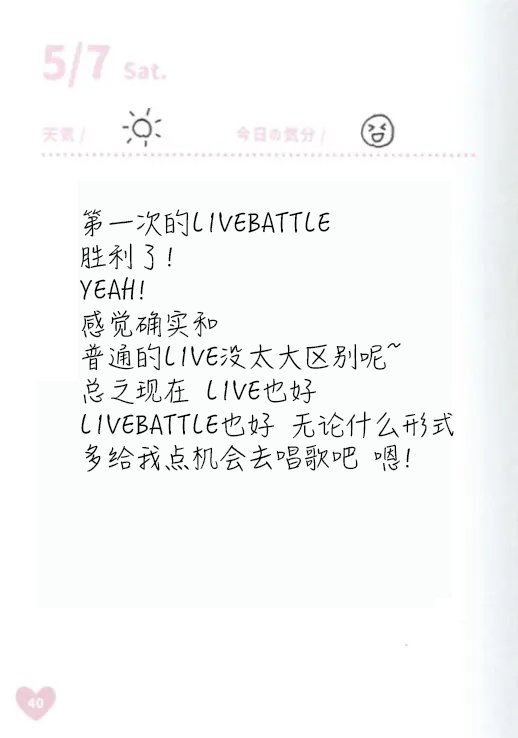 5/7 Sat.
天気 / 今日の気分 /
第一次的LIVEBATTLE
胜利了!
YEAH!
感觉确实和
普通的LIVE没太大区别呢~
总之现在 LIVE也好
LIVEBATTLE也好 无论什么形式
多给我点机会去唱歌吧 嗯!
40